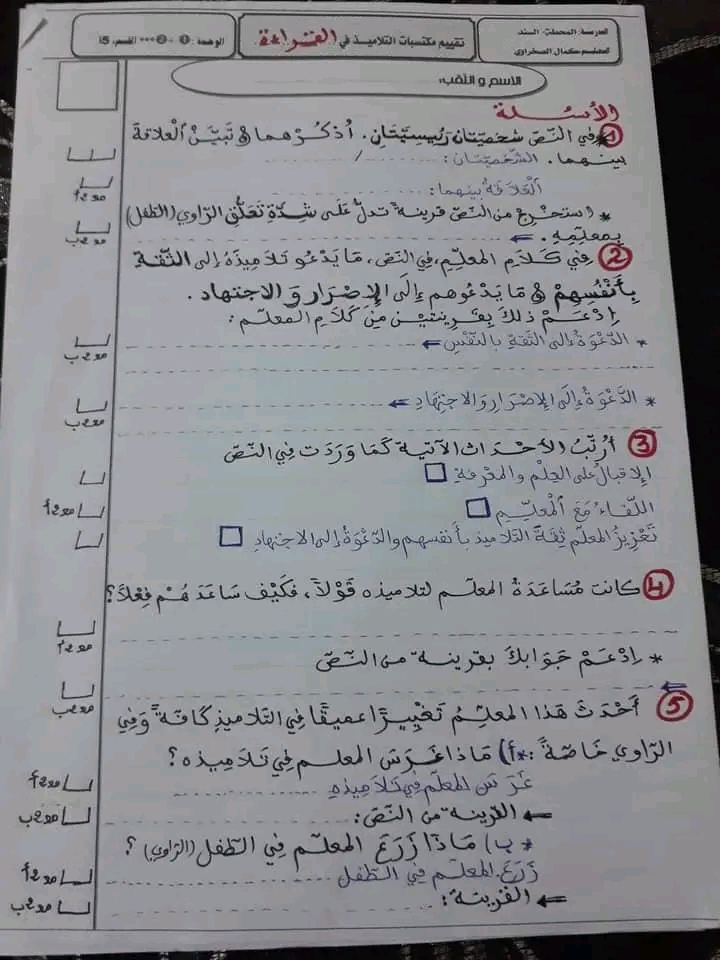 المدرسة: المحطة- السند
المعلم: كمال الصخراوي
تقييم مكتسبات التلاميذ في القراءة
الوحدة: ① + ② *** القسم: 5
الاسم و اللقب:
الأسئلة
1 في النّصّ شخصيّتان رئيسيّتان. أذكرهما و تبيّن العلاقة
بينهما. الشّخصيّتان: / 
العلاقة بينهما:
مع2أ
* استخرج من النصّ قرينة تدلّ على شدّة تعلّق الرّاوي (الطّفل)
بمعلّمه.
مع2ب
2 في كلام المعلّم، في النّص، ما يدعو تلاميذه إلى الثقة
بأنفسهم و ما يدعوهم إلى الإصرار و الاجتهاد.
إدعم ذلك بقرينتين من كلام المعلّم:
* الدّعوة إلى الثّقة بالنّفس
مع2ب
* الدّعوة إلى الإصرار والاجتهاد
مع2ب
3 أرتّب الأحداث الآتية كما وردت في النّصّ
الإقبال على العلم والمعرفة
اللقاء مع المعلّم
مع2أ
تعزيز المعلّم ثقة التلاميذ بأنفسهم والدّعوة إلى الاجتهاد
4 كانت مساعدة المعلّم لتلاميذه قولاً، فكيف ساعدهم فعلاً؟
مع2أ
* إدعم جوابك بقرينة من النّصّ
مع2ب
5 أحدث هذا المعلّم تغييرًا عميقًا في التلاميذ كافّة وفي
الرّاوي خاصّة: *أ) ماذا غرس المعلم في تلاميذه؟
غرس المعلّم في تلاميذه
مع2أ
القرينة من النّص:
مع2ب
* ب) ماذا زرع المعلّم في الطّفل (الرّاوي)؟
زرع المعلّم في الطّفل
مع2أ
القرينة:
مع2ب